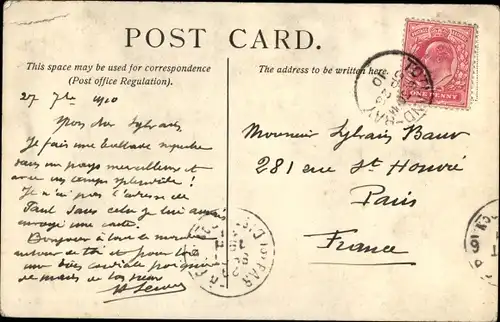 POST CARD.
This space may be used for correspondence
(Post office Regulation).
The address to be written here.
ONE PENNY
27 7bre 1910
Mon cher Sylvain
Je fais une ballade superbe
dans un pays merveilleux et
avec un temps splendide !
Je n'ai pas l'adresse de
Paul sans cela je lui aurais
envoyé une carte.
Bonjour à tout le monde
autour de toi et pour toi
une bien cordiale poignée
de mains de
Monsieur Sylvain Baur
281 rue St Honoré
Paris
France